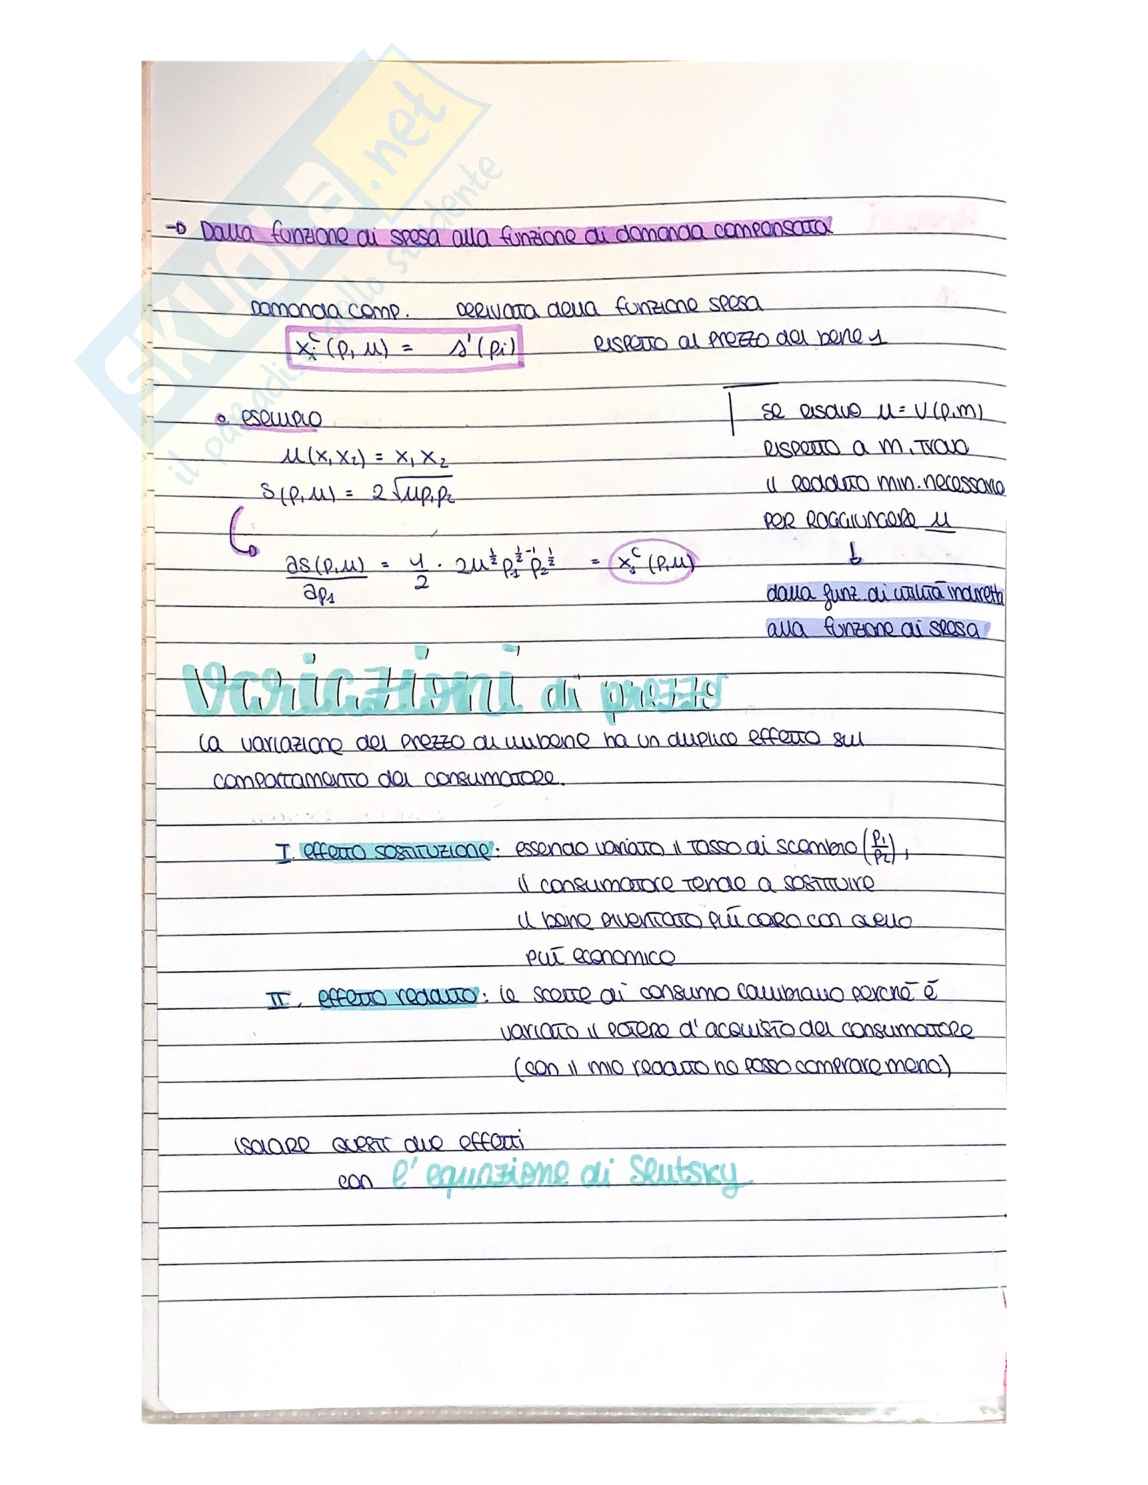 SKUOLA.net
il paradiso dello studente
→ Dalla funzione di spesa alla funzione di domanda compensata
Domanda comp. Derivata della funzione spesa
xᵢᶜ (p, u) = s'(pi) rispetto al prezzo del bene 1
• esempio
u(x, x₂) = x₁ x₂
s(p, u) = 2√up₁p₂
∂s(p,u)/∂p₁ = 1/2 · 2u^½ p₁^½⁻¹ p₂^½ = x₁ᶜ (p,u)
Se risolvo u = V(p,m)
rispetto a m, trovo
il reddito min. necessario
per raggiungere u
↓
dalla funz. di utilità indiretta
alla funzione di spesa
Variazioni di prezzo
La variazione del prezzo di un bene ha un duplice effetto sul
comportamento del consumatore.
I. effetto sostituzione: essendo variato il tasso di scambio (p₁/p₂),
il consumatore tende a sostituire
il bene diventato più caro con quello
più economico
II. effetto reddito: le scelte di consumo cambiano perché è
variato il potere d'acquisto del consumatore
(con il mio reddito no posso comprare meno)
isolare questi due effetti
con l'equazione di Slutsky